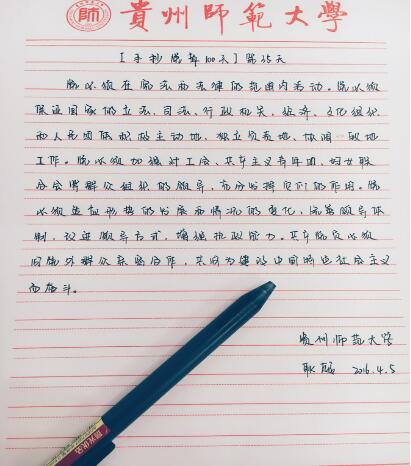 貴州師範大學
【手抄党章100天】第35天
党必须在宪法和法律的范围内活动。党必须
保证国家的立法、司法、行政机关,经济、文化组织
和人民团体积极主动地、独立负责地、协调一致地
工作。党必须加强对工会、共产主义青年团、妇女联
合会等群众组织的领导,充分发挥它们的作用。党
必须适应形势的发展和情况的变化,完善领导体
制,改进领导方式,增强执政能力。共产党员必须
同党外群众亲密合作,共同为建设中国特色社会主义
而奋斗。
贵州师范大学
2016.4.5